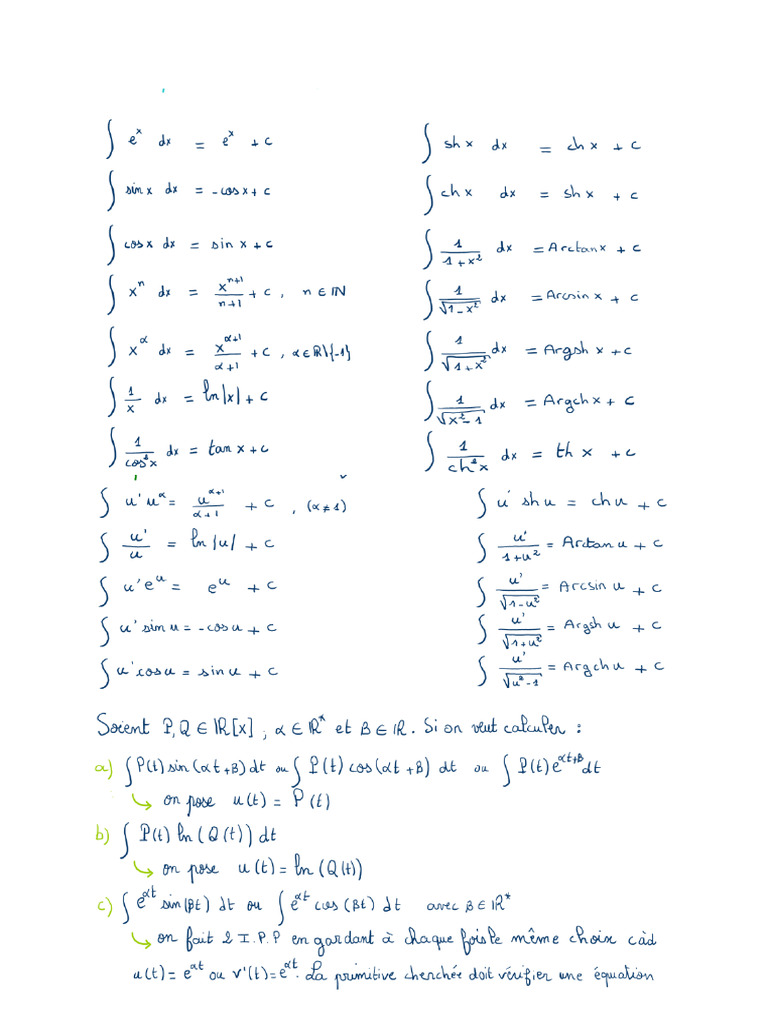 ∫ e^x dx = e^x + c
∫ sin x dx = -cos x + c
∫ cos x dx = sin x + c
∫ x^n dx = x^{n+1}/(n+1) + c, n ∈ ℕ
∫ x^α dx = x^{α+1}/(α+1) + c, α ∈ ℝ\{-1}
∫ 1/x dx = ln|x| + c
∫ 1/cos²x dx = tan x + c
∫ sh x dx = ch x + c
∫ ch x dx = sh x + c
∫ 1/(1+x²) dx = Arctan x + c
∫ 1/√(1-x²) dx = Arcsin x + c
∫ 1/√(1+x²) dx = Argsh x + c
∫ 1/√(x²-1) dx = Argch x + c
∫ 1/ch²x dx = th x + c
∫ u' u^α = u^{α+1}/(α+1) + c, (α ≠ 1)
∫ u'/u = ln|u| + c
∫ u' e^u = e^u + c
∫ u' sin u = -cos u + c
∫ u' cos u = sin u + c
∫ u' sh u = ch u + c
∫ u'/(1+u²) = Arctan u + c
∫ u'/√(1-u²) = Arcsin u + c
∫ u'/√(1+u²) = Argsh u + c
∫ u'/√(u²-1) = Argch u + c
Soient P, Q ∈ ℝ[x], α ∈ ℝ* et β ∈ ℝ. Si on veut calculer :
a) ∫ P(t) sin(αt+β) dt ou ∫ P(t) cos(αt+β) dt ou ∫ P(t) e^{αt+β} dt
↪ on pose u(t) = P(t)
b) ∫ P(t) ln(Q(t)) dt
↪ on pose u(t) = ln(Q(t))
c) ∫ e^{αt} sin(βt) dt ou ∫ e^{αt} cos(βt) dt avec β ∈ ℝ*
↪ on fait 2 I.P.P en gardant à chaque fois le même choix càd
u(t) = e^{αt} ou v'(t) = e^{αt}. La primitive cherchée doit vérifier une équation